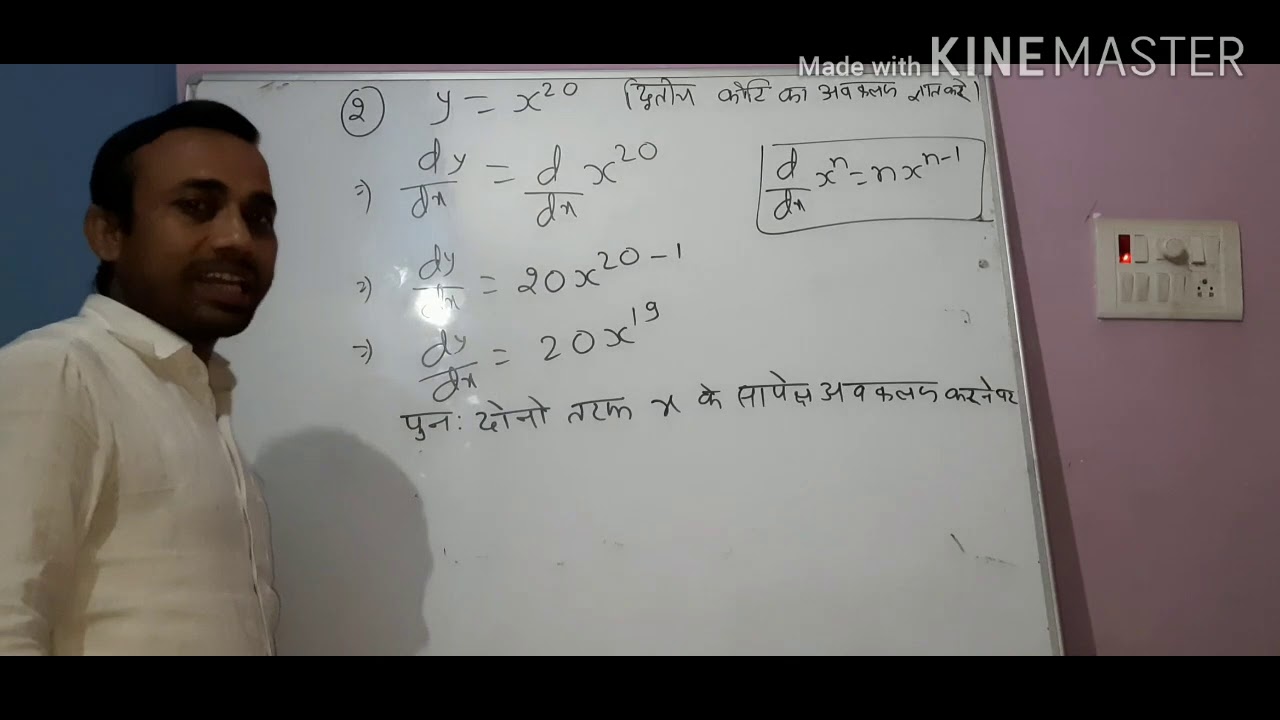 Made with KINEMASTER
② y = x^20 (द्वितीय कोटि का अवकलक ज्ञात करे।
⇒) dy/dx = d/dx x^20
d/dx x^n = nx^n-1
⇒) dy/dx = 20x^20-1
⇒) dy/dx = 20x^19
पुनः दोनो तरफ x के सापेक्ष अवकलन करने पर